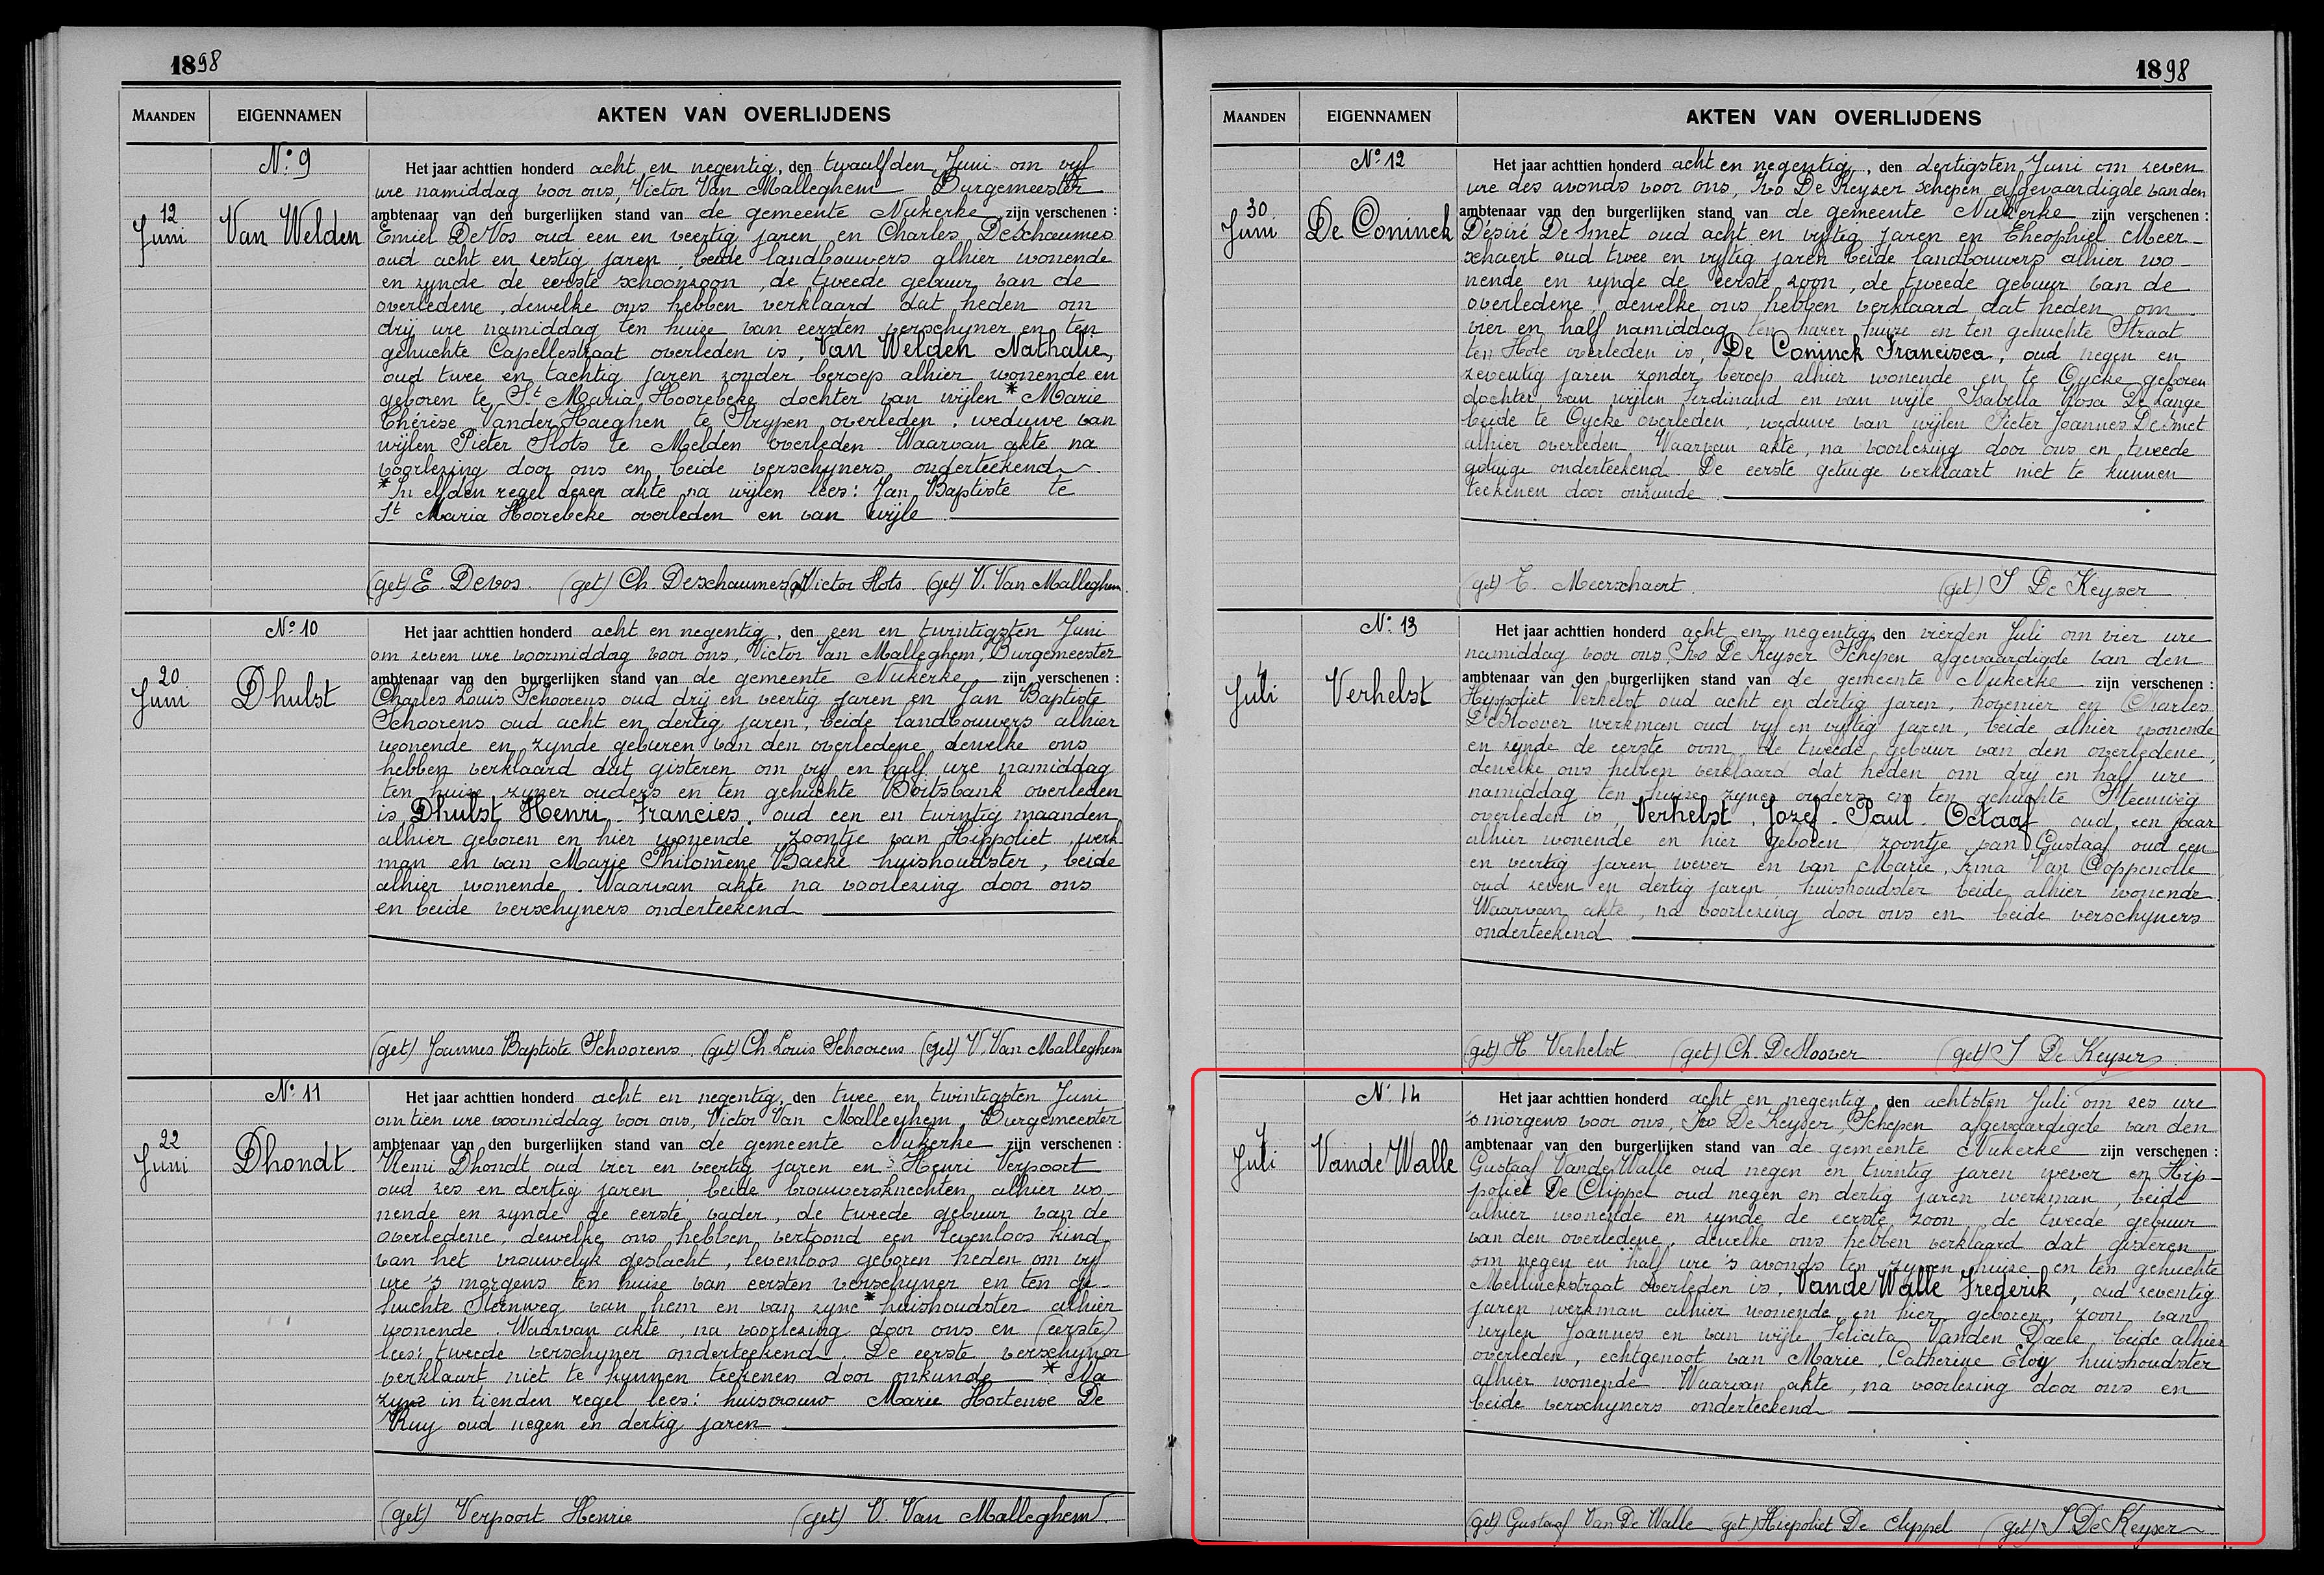 1898
MAANDEN
EIGENNAMEN
AKTEN VAN OVERLIJDENS
Nº 9
12
Juni
Van Welden
Het jaar achttien honderd acht en negentig, den twaalfden Juni om vijf
ure namiddag voor ons, Victor Van Malleghem Burgemeester
ambtenaar van den burgerlijken stand van de gemeente Nukerke zijn verschenen :
Emiel De Vos oud een en veertig jaren en Charles Deschaumes
oud acht en zestig jaren, beide landbouwers alhier wonende
en zynde de eerste schoonzoon, de tweede gebuur van de
overledene, dewelke ons hebben verklaard dat heden om
drij ure namiddag ten huize van eersten verschyner en ten
gehuchte Capellestraat overleden is, Van Welden Nathalie,
oud twee en tachtig jaren zonder beroep alhier wonende en
geboren te St Maria Hoorebeke dochter van wijlen * Marie
Thérèse Vander Haeghen te Strypen overleden, weduwe van
wijlen Pieter Slots te Melden overleden. Waarvan akte na
voorlezing door ons en beide verschyners onderteekend
* In elfden regel dezer akte na wijlen lees: Jan Baptiste te
St Maria Hoorebeke overleden en van wijle
(get) E. Devos. (get) Ch. Deschaumes (get) Victor Slots. (get) V. Van Malleghem.
Nº 10
20
Juni
Dhulst
Het jaar achttien honderd acht en negentig, den een en twintigsten Juni
om zeven ure voormiddag voor ons, Victor Van Malleghem, Burgemeester
ambtenaar van den burgerlijken stand van de gemeente Nukerke zijn verschenen :
Charles Louis Schoorens oud drij en veertig jaren en Jan Baptiste
Schoorens oud acht en dertig jaren, beide landbouwers alhier
wonende en zynde geburen van den overledene dewelke ons
hebben verklaard dat gisteren om vyf en half ure namiddag
ten huize zyner ouders en ten gehuchte Boitsbank overleden
is, Dhulst Henri - Francies. oud een en twintig maanden
alhier geboren en hier wonende zoontje van Hippoliet werk-
man en van Marie Philomène Baeke huishoudster, beide
alhier wonende. Waarvan akte na voorlezing door ons
en beide verschyners onderteekend
(get) Joannes Baptiste Schoorens. (get) Ch. Louis Schoorens (get) V. Van Malleghem
Nº 11
22
Juni
Dhondt.
Het jaar achttien honderd acht en negentig, den twee en twintigsten Juni
om tien ure voormiddag voor ons, Victor Van Malleghem, Burgemeester
ambtenaar van den burgerlijken stand van de gemeente Nukerke zijn verschenen :
Remi Dhondt oud vier en veertig jaren en Henri Verpoort
oud zes en dertig jaren, beide brouwersknechten alhier wo-
nende en zynde de eerste vader, de tweede gebuur van de
overledene, dewelke ons hebben vertoond een levenloos kind
van het vrouwelyk geslacht, levenloos geboren heden om vyf
ure 's morgens ten huize van eersten verschyner en ten ge-
huchte Steenweg van hem en van zyne * huishoudster alhier
wonende. Waarvan akte, na voorlezing door ons en (eerste)
lees: tweede verschyner onderteekend. De eerste verschyner
verklaart niet te kunnen teekenen door onkunde * Na
zyne in tienden regel lees: huisvrouw Marie Hortense De
Ruy oud negen en dertig jaren
(get) Verpoort Henrie (get) V. Van Malleghem
1898
MAANDEN
EIGENNAMEN
AKTEN VAN OVERLIJDENS
Nº 12
30
Juni
De Coninck
Het jaar achttien honderd acht en negentig, den dertigsten Juni om zeven
ure des avonds voor ons, Ivo De Keyser schepen afgevaardigde van den
ambtenaar van den burgerlijken stand van de gemeente Nukerke zijn verschenen :
Désiré De Smet oud acht en vyftig jaren en Theophiel Meer-
schaert oud twee en vyftig jaren beide landbouwers alhier wo-
nende en zynde de eerste zoon, de tweede gebuur van de
overledene, dewelke ons hebben verklaard dat heden om
vier en half namiddag ten harer huize en ten gehuchte Straat
ten Hole overleden is, De Coninck Francisca, oud negen en
zeventig jaren zonder beroep alhier wonende en te Oycke geboren
dochter van wijlen Ferdinand en van wijle Isabella Rosa De Lange
beide te Oycke overleden, weduwe van wijlen Pieter Joannes De Smet
alhier overleden. Waarvan akte, na voorlezing door ons en tweede
getuige onderteekend. De eerste getuige verklaart niet te kunnen
teekenen door onkunde.
(get) T. Meerschaert (get) I De Keyser
Nº 13
4
Juli
Verhelst
Het jaar achttien honderd acht en negentig, den vierden Juli om vier ure
namiddag voor ons, Ivo De Keyser Schepen afgevaardigde van den
ambtenaar van den burgerlijken stand van de gemeente Nukerke zijn verschenen :
Hippoliet Verhelst oud acht en dertig jaren, hovenier en Charles
De Sloover werkman oud vyf en vyftig jaren, beide alhier wonende
en zynde de eerste oom, de tweede gebuur van den overledene,
dewelke ons hebben verklaard dat heden om drij en half ure
namiddag ten huize zyner ouders en ten gehuchte Steenweg
overleden is, Verhelst, Jozef - Paul - Octaaf oud een jaar
alhier wonende en hier geboren zoontje van Gustaaf oud een
en veertig jaren wever en van Marie, Irina Van Coppenolle
oud zeven en dertig jaren, huishoudster beide alhier wonende.
Waarvan akte, na voorlezing door ons en beide verschyners
onderteekend.
(get) H Verhelst (get) Ch. De Sloover (get) I De Keyser.
Nº 14
7
Juli
Vande Walle
Het jaar achttien honderd acht en negentig, den achtsten Juli om zes ure
's morgens voor ons, Ivo De Keyser, Schepen afgevaardigde van den
ambtenaar van den burgerlijken stand van de gemeente Nukerke zijn verschenen :
Gustaaf Vande Walle oud negen en twintig jaren wever en Hip-
poliet De Clippel oud negen en dertig jaren werkman, beide
alhier wonende en zynde de eerste zoon de tweede gebuur
van den overledene, dewelke ons hebben verklaard dat gisteren
om negen en half ure 's avonds ten zynen huize en ten gehuchte
Mellinckstraat overleden is, Vande Walle Frederik, oud zeventig
jaren werkman alhier wonende en hier geboren, zoon van
wijlen Joannes en van wijle Felicita Vanden Daele beide alhier
overleden, echtgenoot van Marie, Catherine Eloy huishoudster
alhier wonende. Waarvan akte, na voorlezing door ons en
beide verschyners onderteekend
(get) Gustaaf Van De Walle (get) Hiepoliet De Clyppel (get) I De Keyser